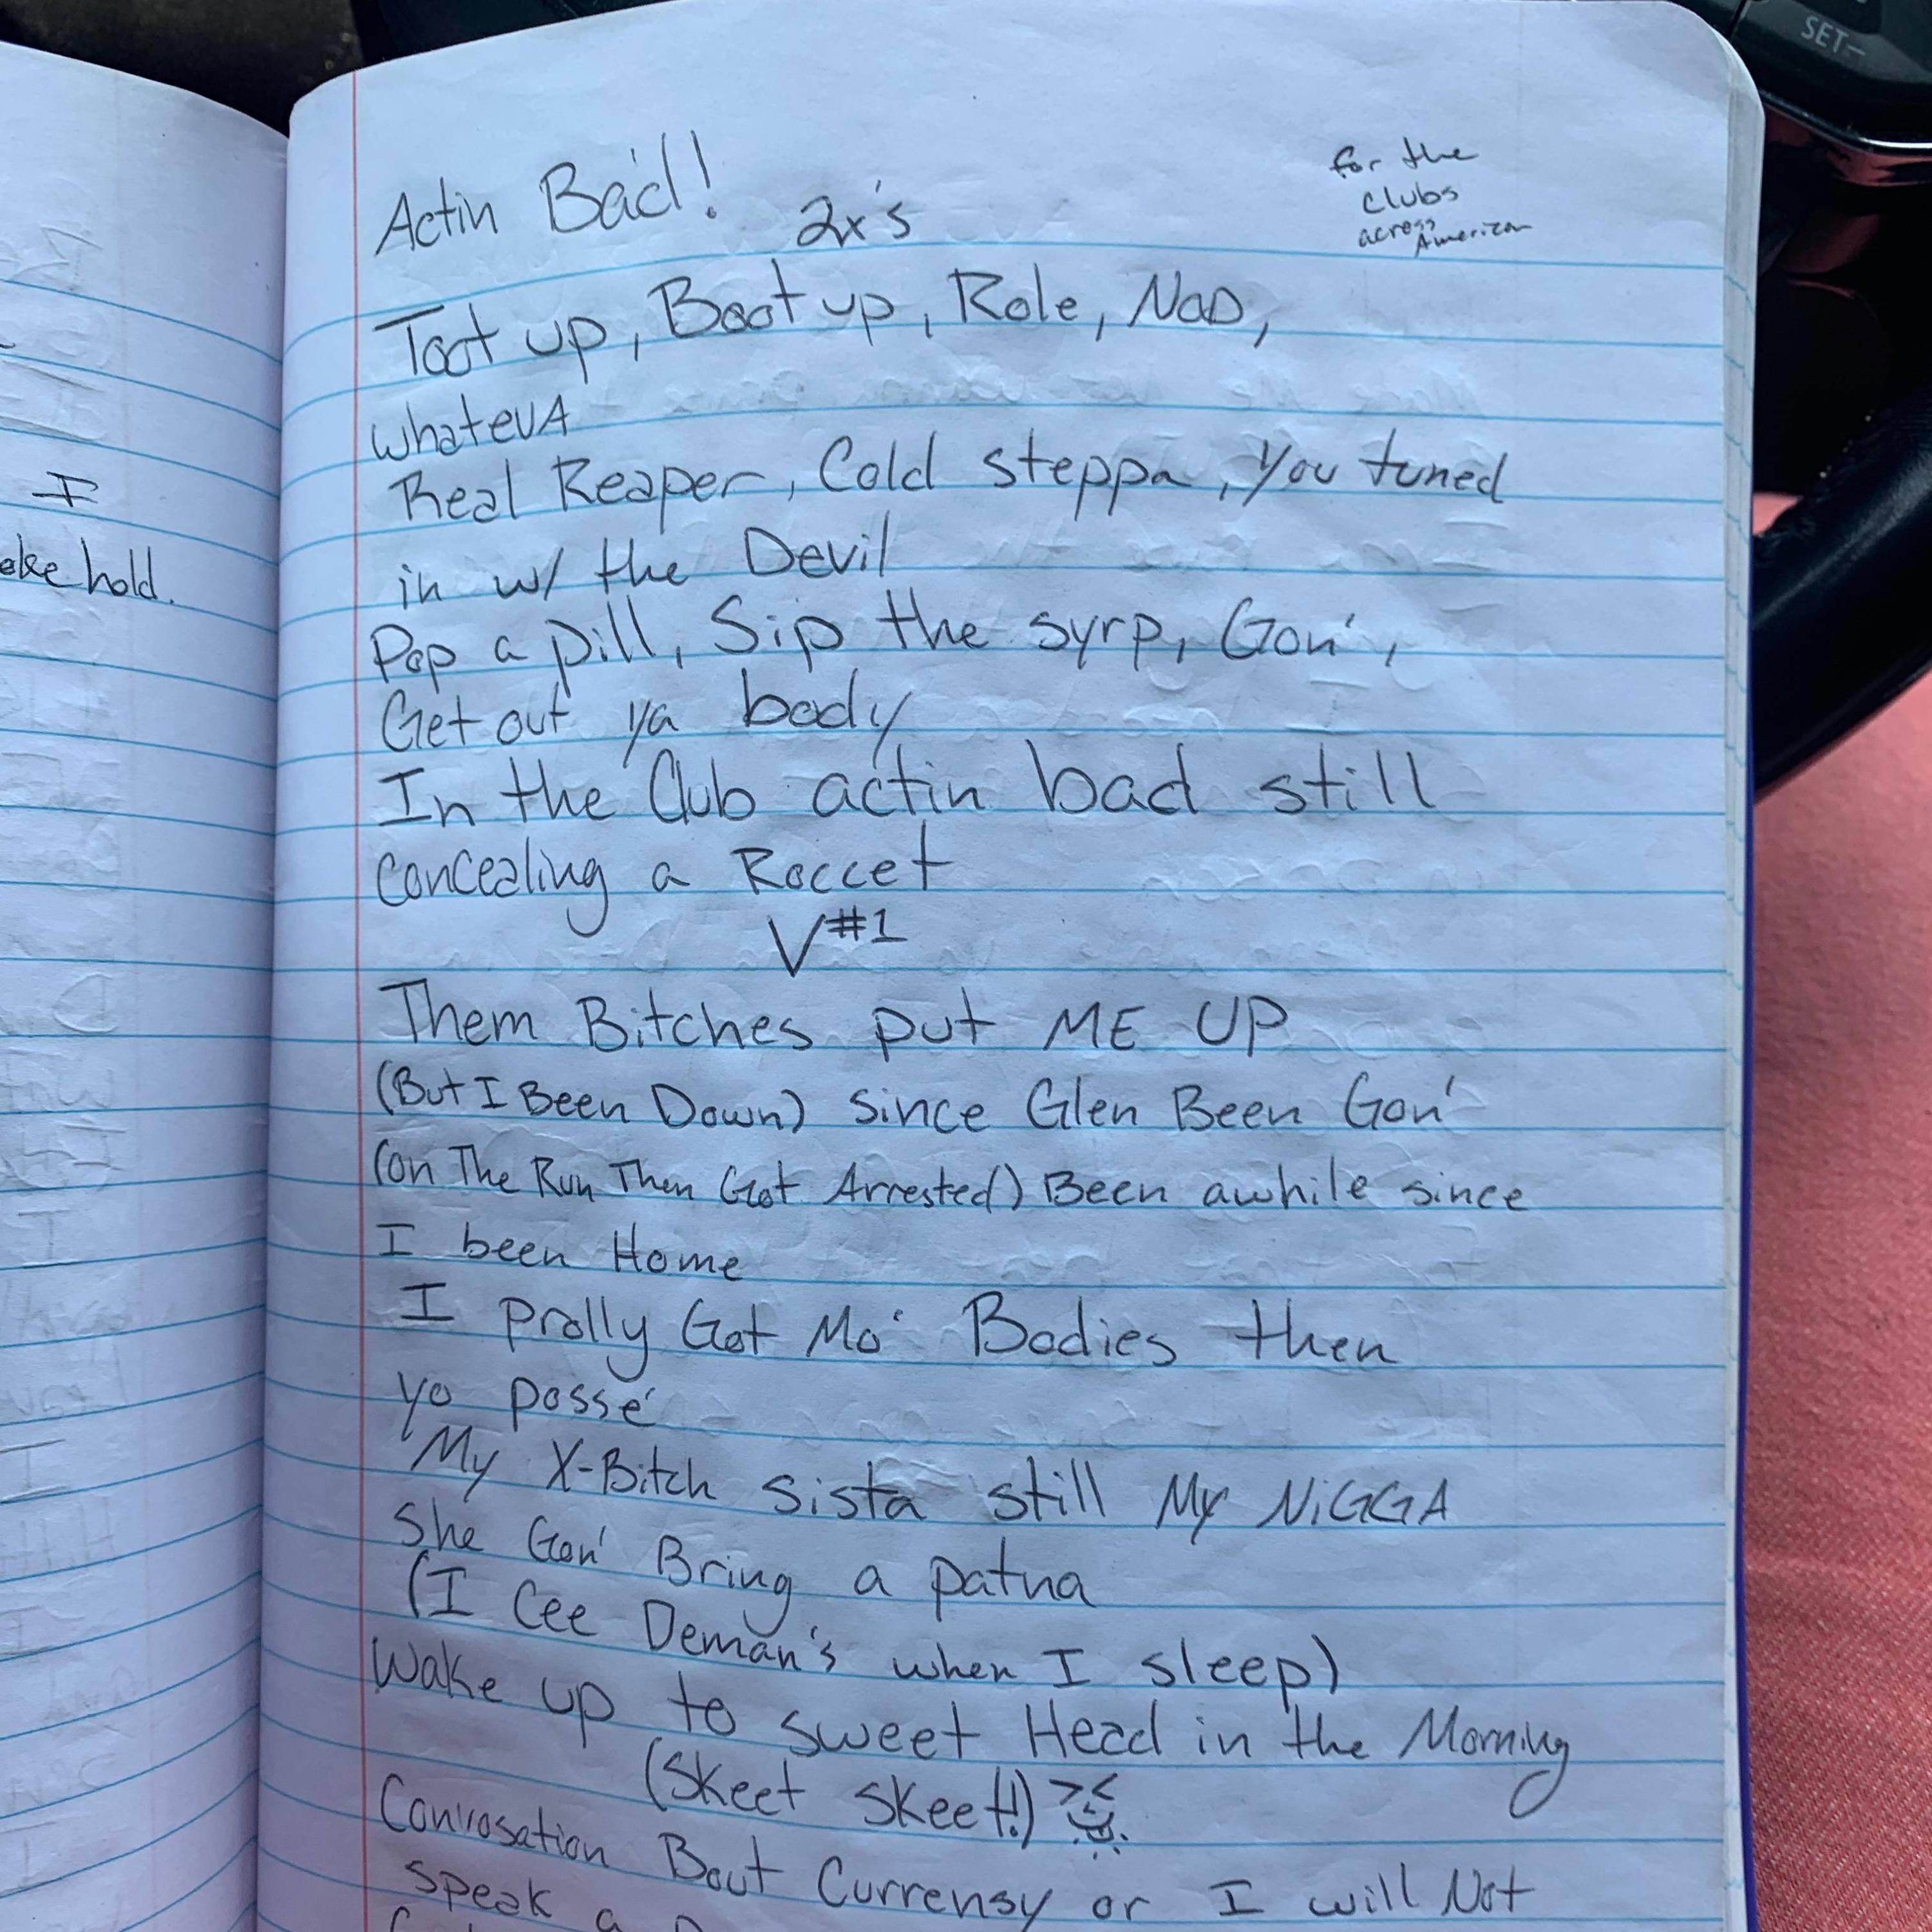 I
hold.
SET-
for the
clubs
across
American
Actin Bad!
2x's
Toot up, Boot up, Role, NOD,
whatevA
Real Reaper, Cold steppa, you tuned
in w/ the Devil
Pop a pill, Sip the syrp, Gon',
Get out ya body
In the Club actin bad still
concealing a Roccet
V#1
Them Bitches put ME UP
(But I Been Down) since Glen Been Gon'
(on The Run Then Got Arrested) Been awhile since
I been Home
I prolly Got Mo' Bodies then
yo posse'
My X-Bitch sista still My NiGGA
She Gon' Bring a patna
(I Cee Deman's when I sleep)
Wake up to sweet Head in the Morning
(Skeet Skeet!)
Convosation Bout Currensy or I will Not
speak a